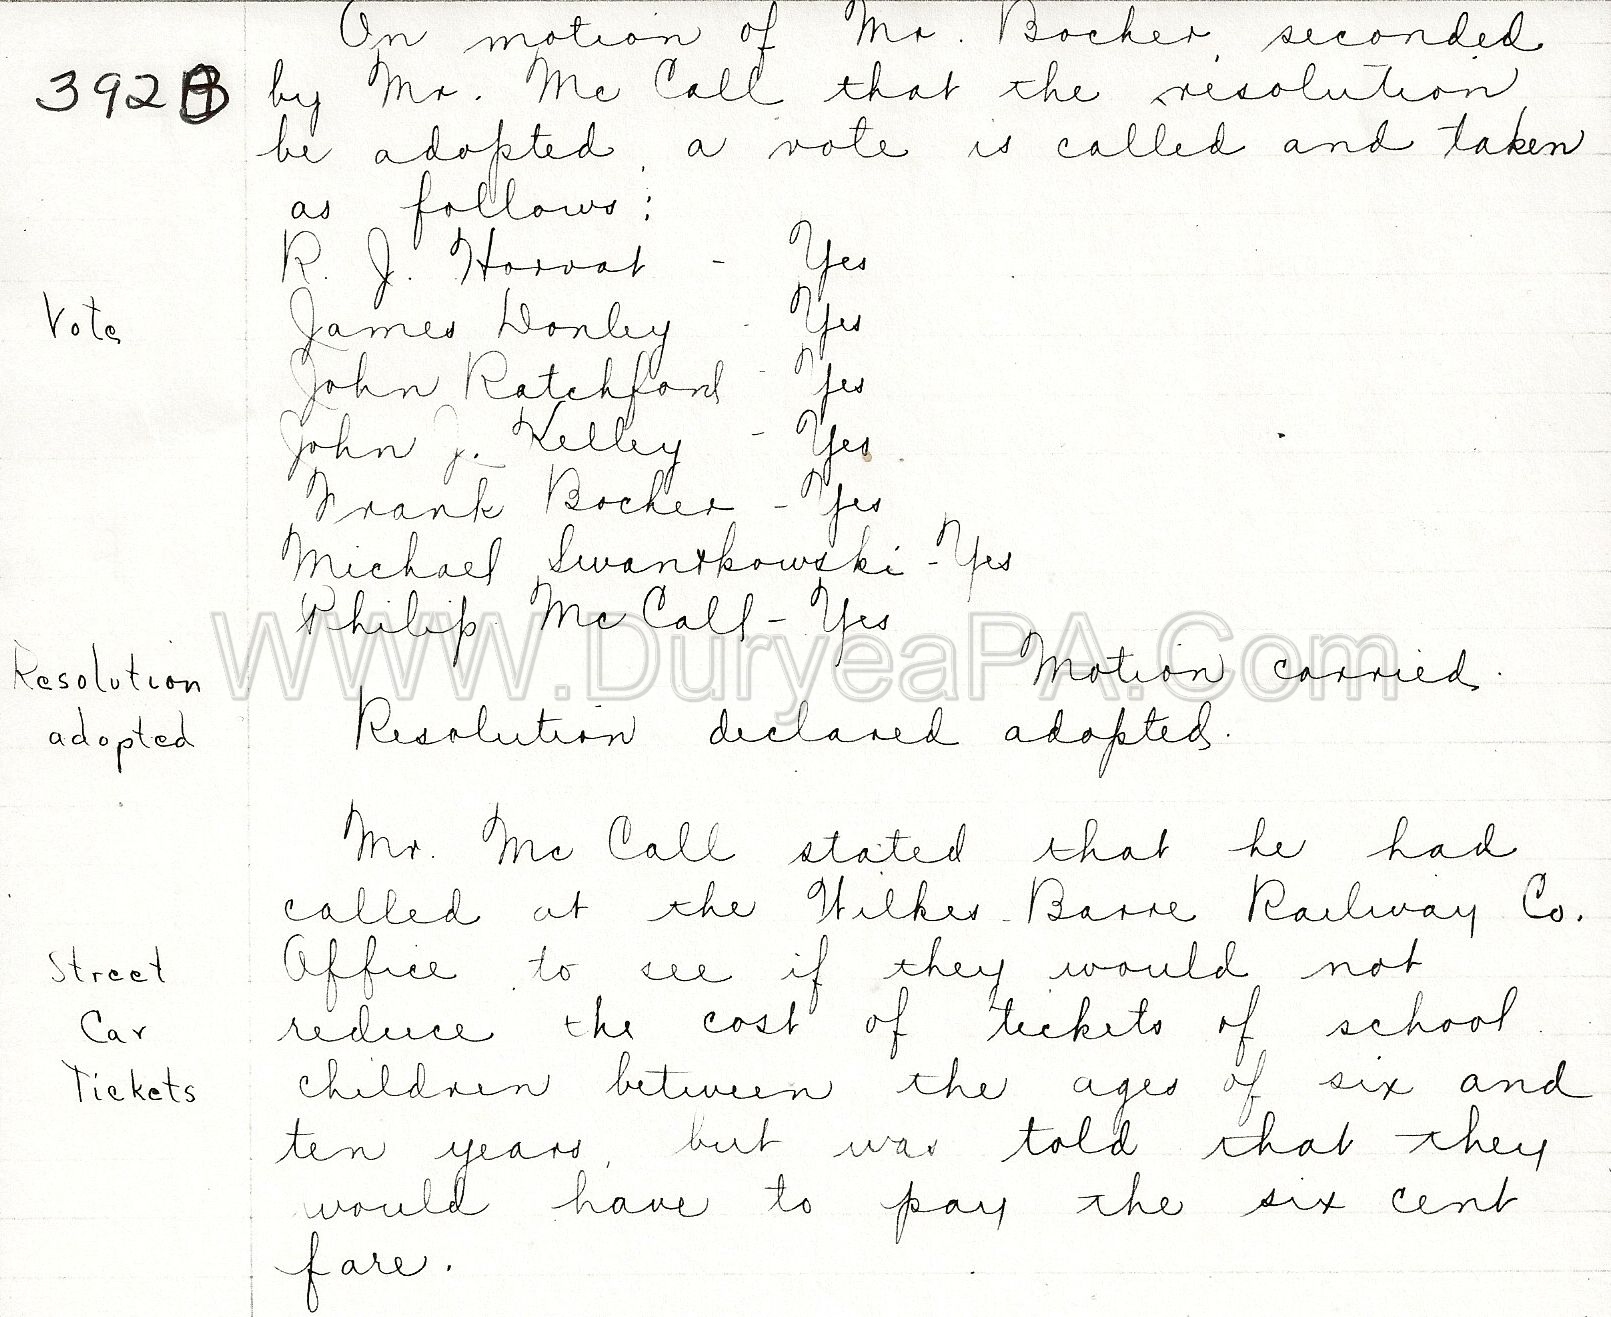 On motion of Mr. Bocher, seconded
392B by Mr. McCall that the resolution
be adopted, a vote is called and taken
as follows:
R. J. Horvat - Yes
Vote James Donley - Yes
John Ratchford - Yes
John J. Kelley - Yes
Frank Bocher - Yes
Michael Swantkowski - Yes
Philip McCall - Yes
WWW.DuryeaPA.Com
Motion carried.
Resolution
adopted Resolution declared adopted.
Mr. McCall stated that he had
called at the Wilkes-Barre Railway Co.
Street Office to see if they would not
Car reduce the cost of tickets of school
Tickets children between the ages of six and
ten years, but was told that they
would have to pay the six cent
fare.